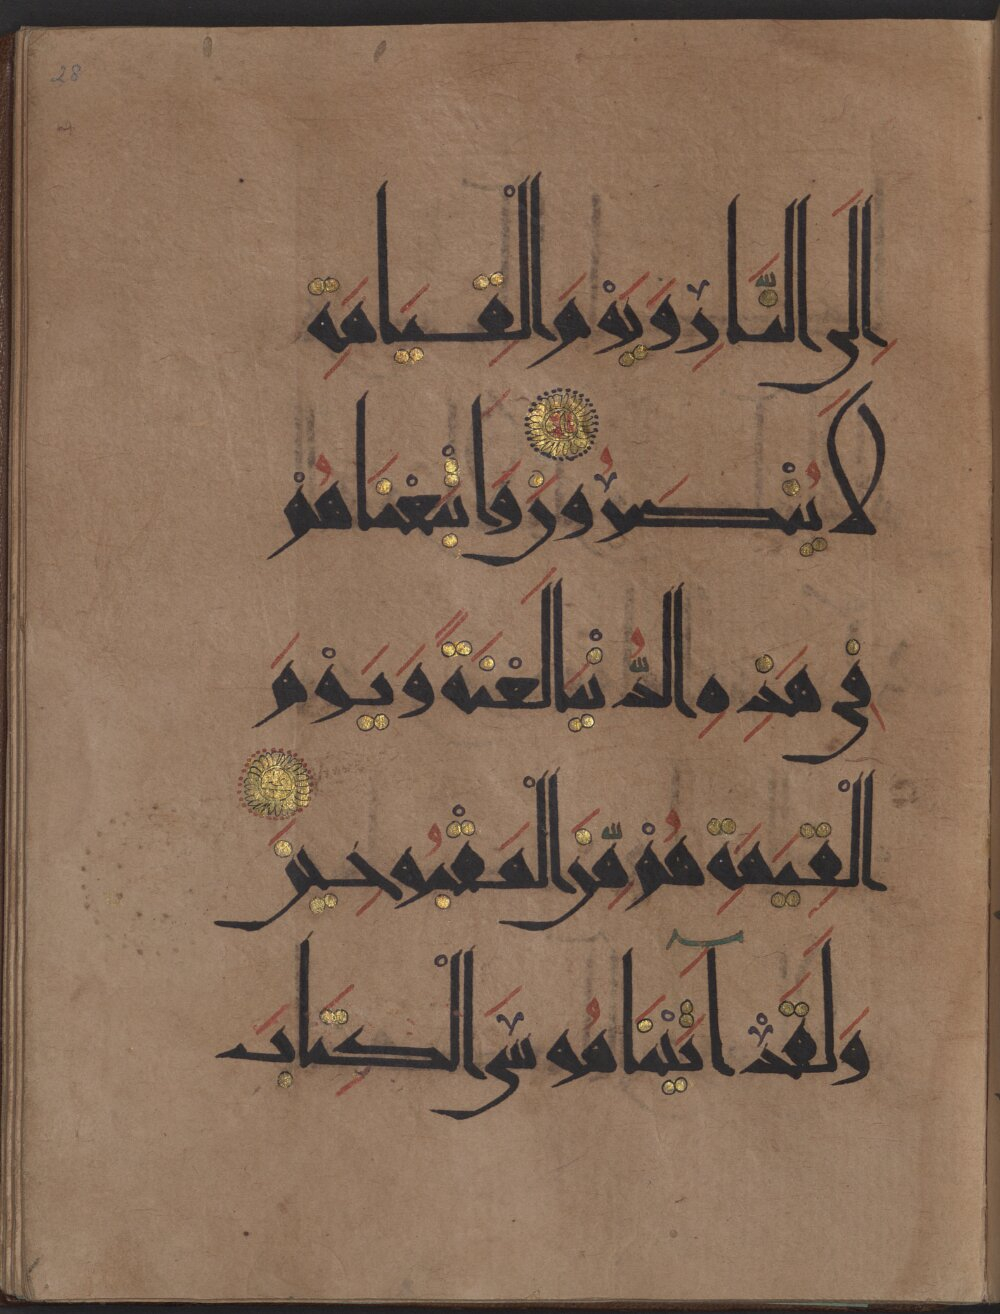 28
إِلَى النَّارِ وَيَوْمَ الْقِيَامَةِ
لَا يُنْصَرُونَ وَاتْبَعْنَاهُمْ
فِي هَذِهِ الدُّنْيَا لَعْنَةً وَيَوْمَ
الْقِيَمَةِ هُمْ مِّنَ الْمَقْبُوحِينَ
وَلَقَدْ آتَيْنَا مُوسَى الْكِتَابَ